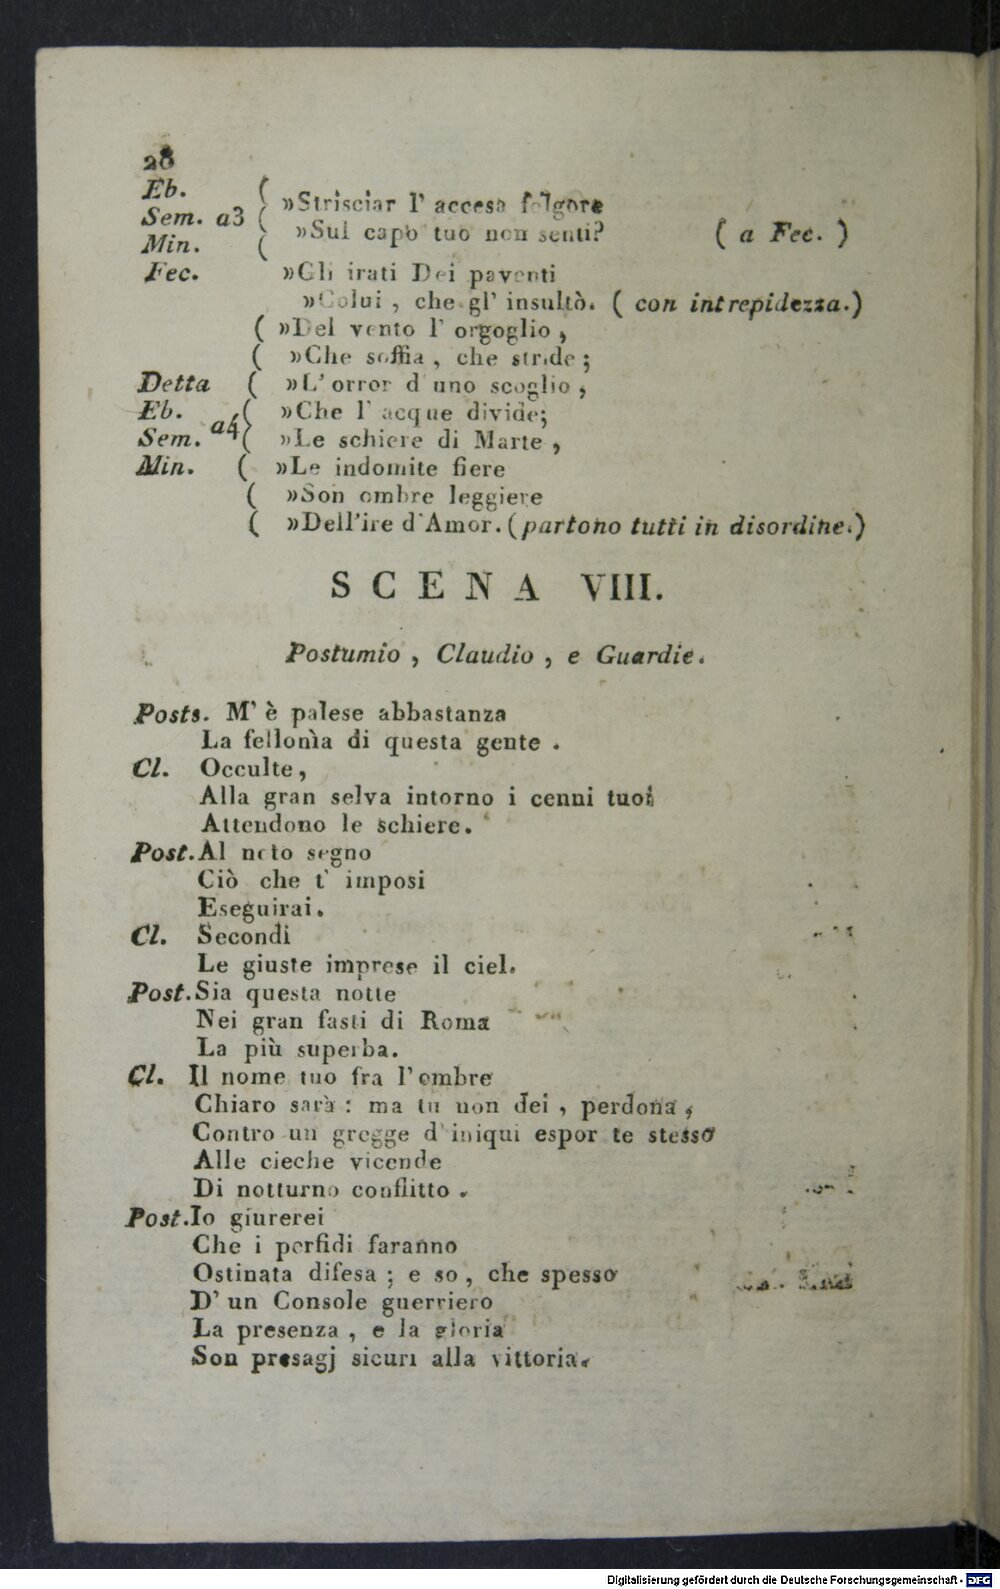 28
Eb. (
Sem. a3 ( »Strisciar l' accesa folgore
Min. ( »Sul capo tuo non senti? ( a Fec. )
Fec. »Gli irati Dei paventi
»Colui , che gl' insultò. ( con intrepidezza.)
( »Del vento l' orgoglio ,
( »Che soffia , che stride ;
Detta ( »L' orror d' uno scoglio ,
Eb. ( »Che l' acque divide;
Sem. a4( »Le schiere di Marte ,
Min. ( »Le indomite fiere
( »Son ombre leggiere
( »Dell'ire d'Amor. (partono tutti in disordine.)
SCENA VIII.
Postumio , Claudio , e Guardie.
Posts. M' è palese abbastanza
La fellonìa di questa gente .
Cl. Occulte,
Alla gran selva intorno i cenni tuoi
Attendono le schiere.
Post. Al noto segno
Ciò che t' imposi
Eseguirai.
Cl. Secondi
Le giuste imprese il ciel.
Post. Sia questa notte
Nei gran fasti di Roma
La più superba.
Cl. Il nome tuo fra l' ombre
Chiaro sarà : ma tu non dei , perdona ,
Contro un gregge d' iniqui espor te stesso
Alle cieche vicende
Di notturno conflitto .
Post. Io giurerei
Che i perfidi faranno
Ostinata difesa ; e so , che spesso
D' un Console guerriero
La presenza , e la gloria
Son presagj sicuri alla vittoria.
Digitalisierung gefördert durch die Deutsche Forschungsgemeinschaft - DFG